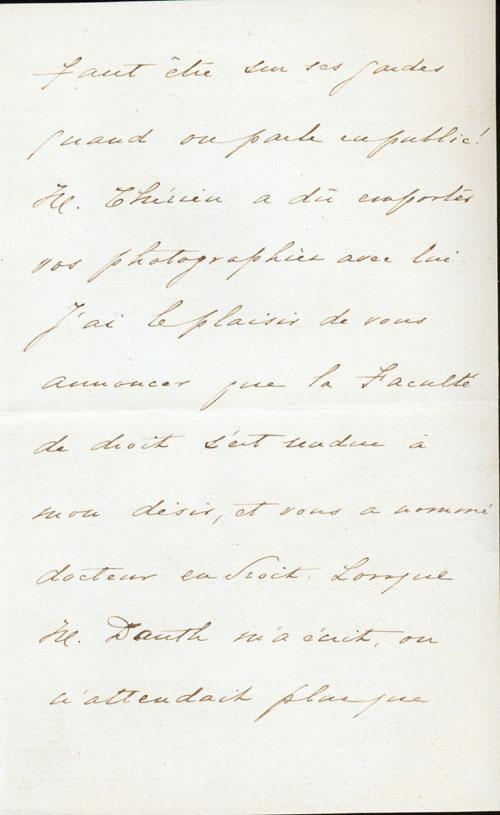 faut être sur ses gardes
quand on parle en public!
M. Thérien a dû emporter
vos photographies avec lui.
J'ai le plaisir de vous
annoncer que la Faculté
de droit s'est rendue à
mon désir, et vous a nommé
docteur en droit. Lorsque
M. Dauth m'a écrit, on
n'attendait plus que